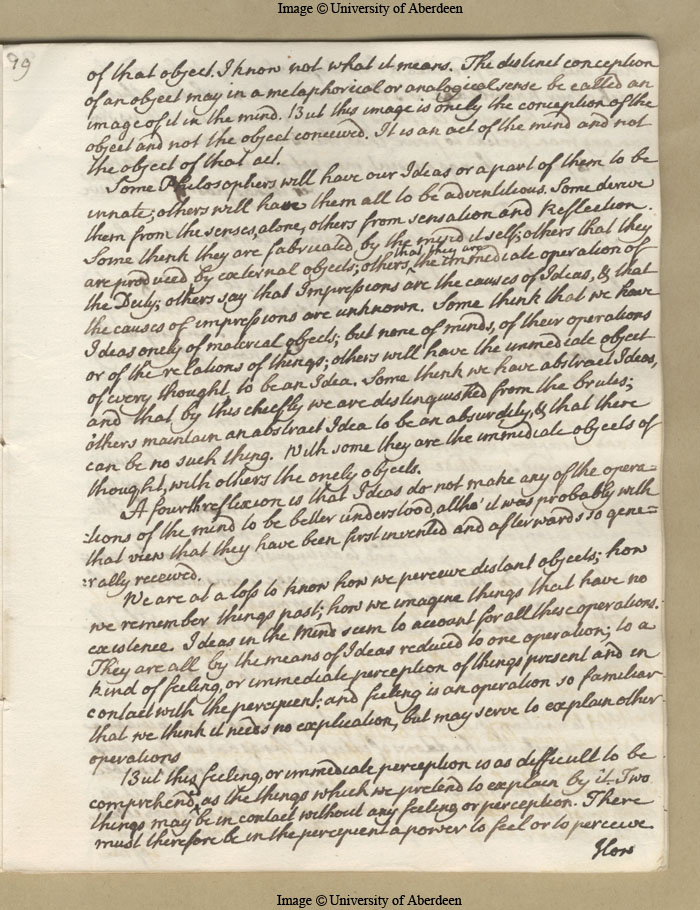 Image © University of Aberdeen
99
of that object. I know not what it means. The distinct conception
of an object may in a metaphorical or analogical sense be called an
image of it in the mind. But this image is onely the conception of the
object and not the object conceived. It is an act of the mind and not
the object of that act.
Some Philosophers will have our Ideas or a part of them to be
innate; others will have them all to be adventitious. Some derive
them from the senses, alone, others from sensation and Reflection.
Some think they are fabricated by the mind it self; others that they
are produced by external objects; others that they are the immediate operation of
the Deity; others say that Impressions are the causes of Ideas, & that
the causes of impressions are unknown. Some think that we have
Ideas onely of material objects; but none of minds, of their operations
or of the relations of things; others will have the immediate object
of every thought to be an Idea. Some think we have abstract Ideas,
and that by this cheefly we are distinguished from the brutes;
others maintain an abstract Idea to be an absurdity, & that there
can be no such thing. With some they are the immediate objects of
thought, with others the onely objects.
A fourth reflexion is that Ideas do not make any of the opera=
=tions of the mind to be better understood, altho' it was probably with
that view that they have been first invented and afterwards so gene=
=rally received.
We are at a loss to know how we perceive distant objects; how
we remember things past; how we imagine things that have no
existence. Ideas in the mind seem to account for all these operations.
They are all by the means of Ideas reduced to one operation; to a
kind of feeling, or immediate perception of things present and in
contact with the percipient; and feeling is an operation so familiar
that we think it needs no explication, but may serve to explain other
operations
But this feeling, or immediate perception is as difficult to be
comprehend, as the things which we pretend to explain by it. Two
things may be in contact without any feeling or perception. There
must therefore be in the percipient a power to feel or to perceive.
How
Image © University of Aberdeen